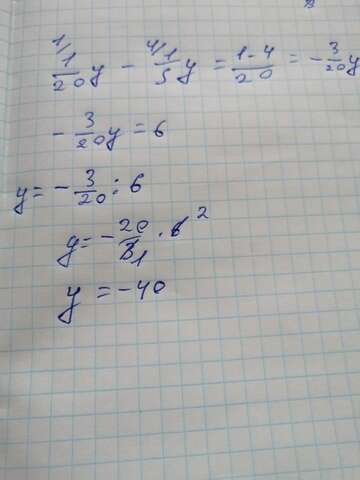 1/ 1/20 y - 4/ 1/5 y = 1-4/20 = -3/20 y
-3/20 y = 6
y = -3/20 : 6
y = -20/3 1 · 6 2
y = -40